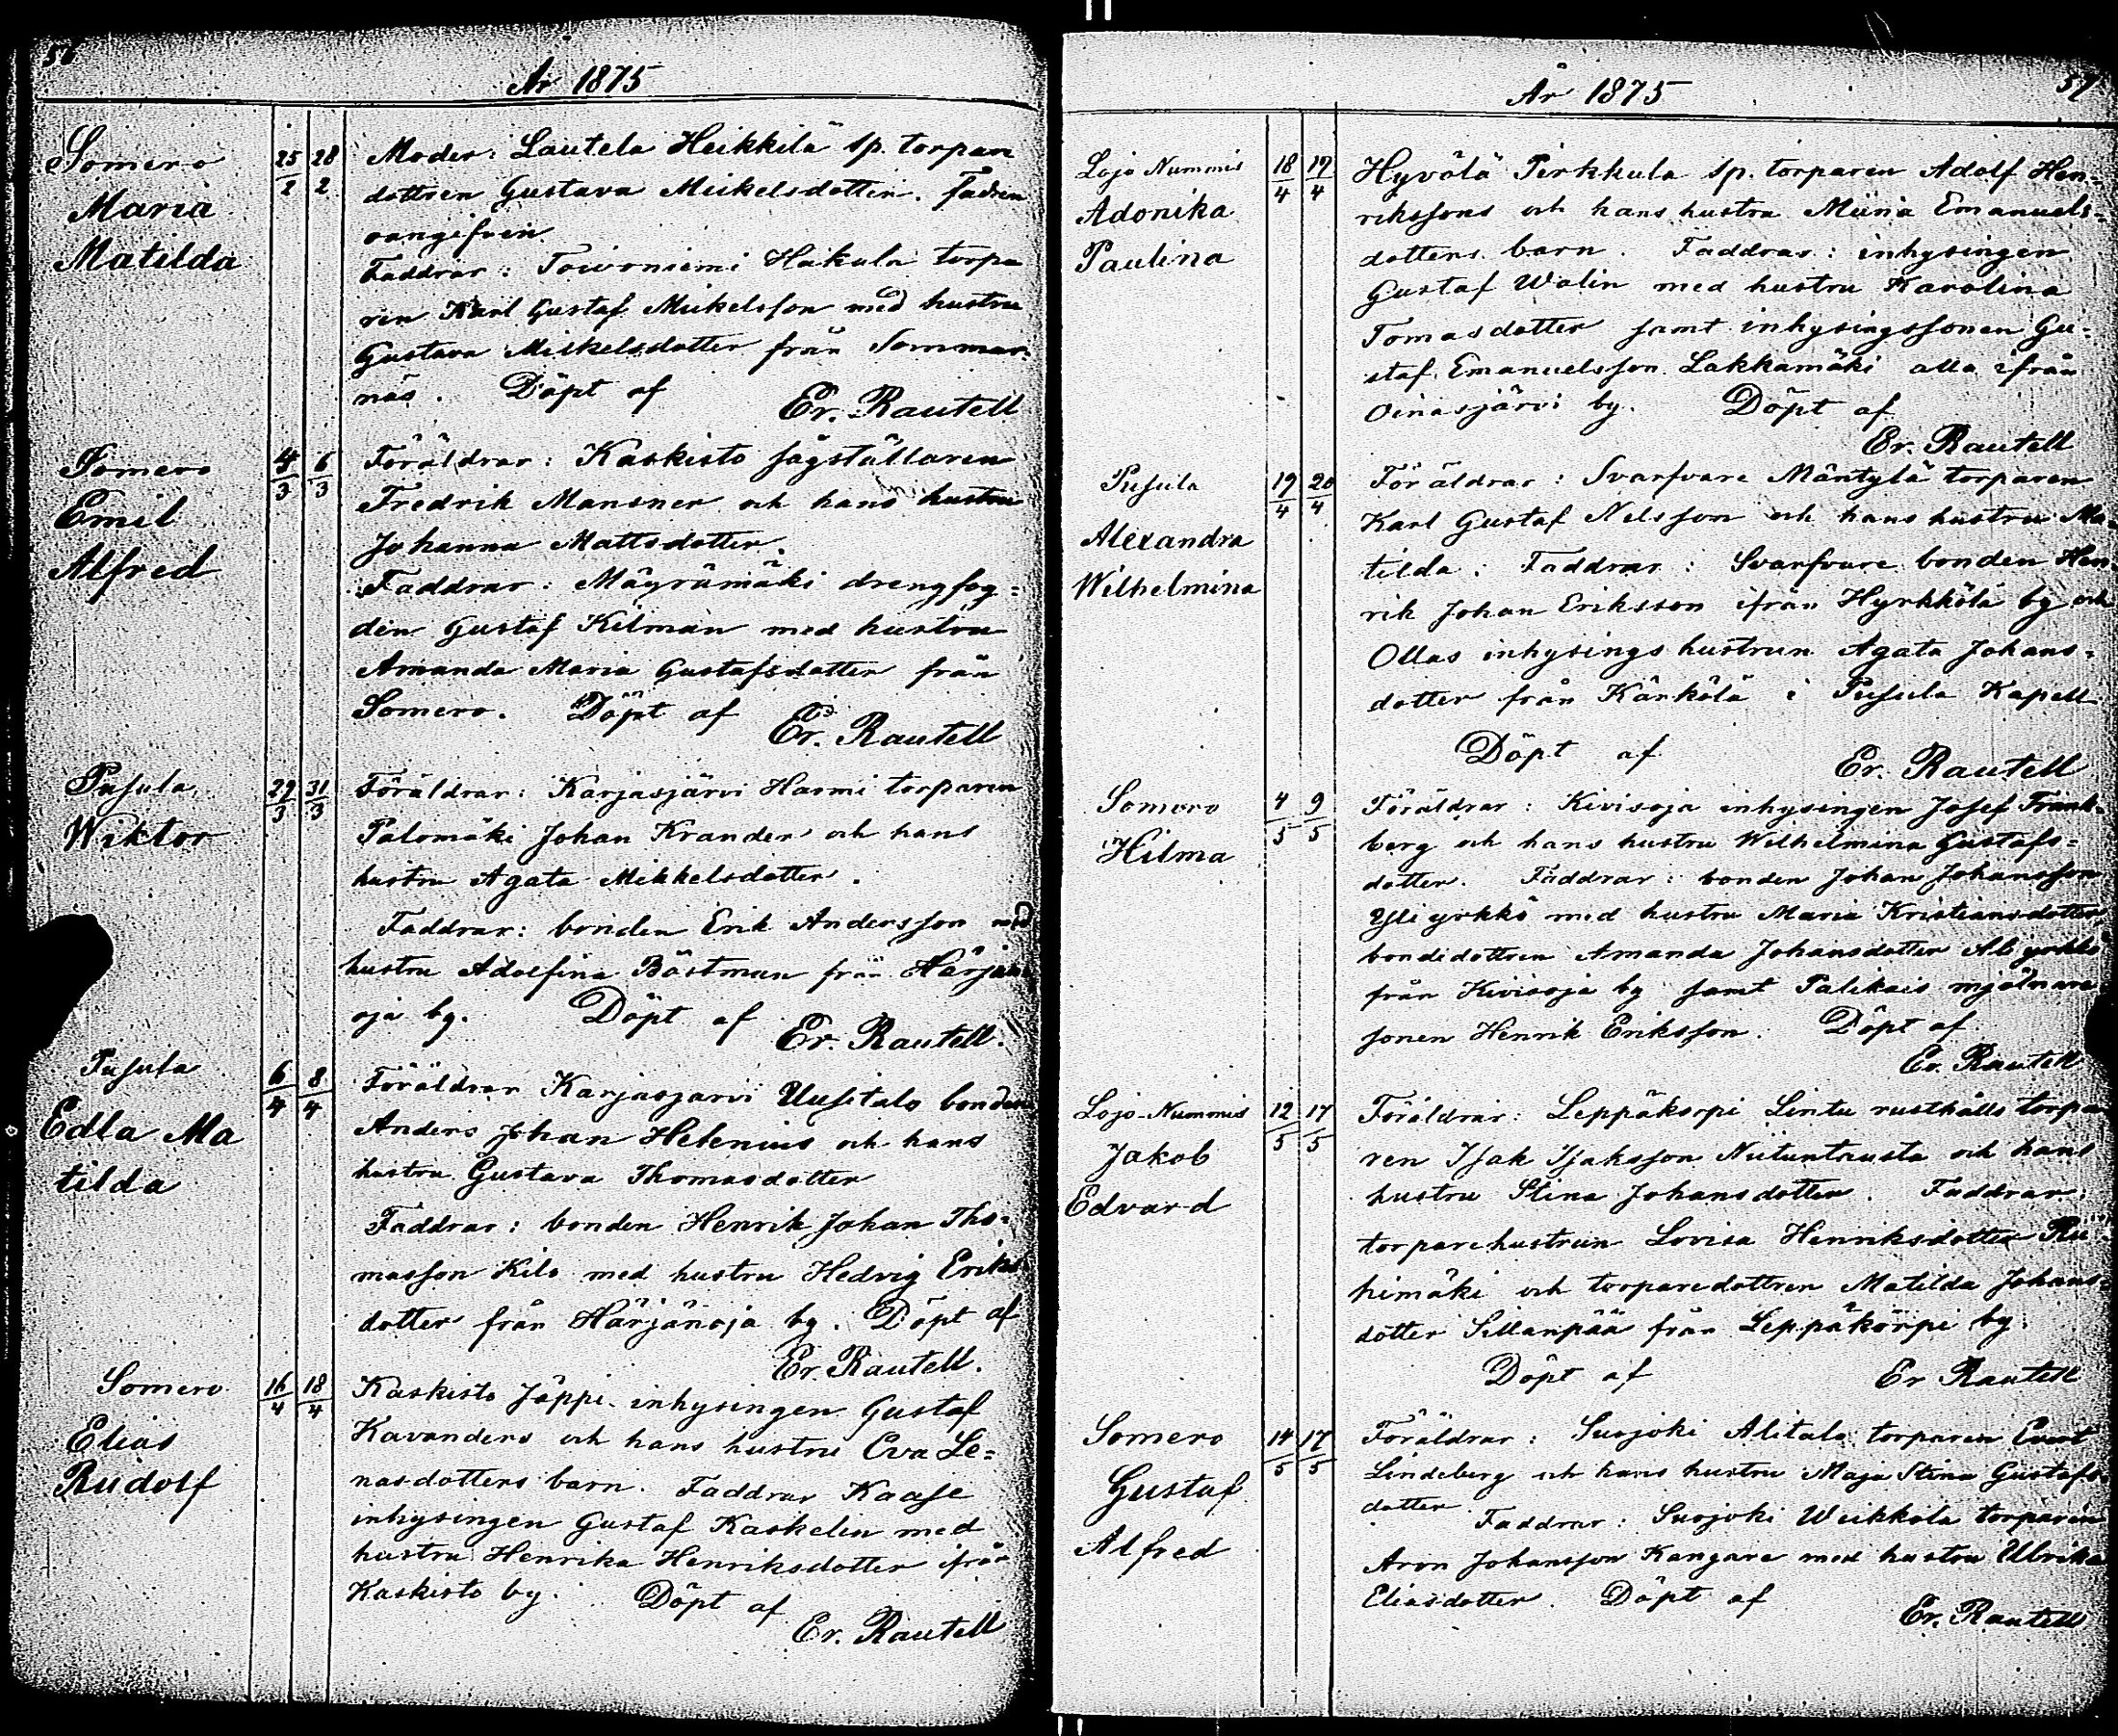 År 1875
Somero
Maria
Matilda
25/2 28/2
Moder: Lautela Heikkilä sp. torpare
dottren Gustava Mickelsdotter. Fadren
oangifven.
Faddrar: Toivoniemi Hakula torpa
ren Karl Gustaf Mickelsson med hustru
Gustava Mickelsdotter från Sommar-
näs. Döpt af
Er. Rautell
Somero
Emil
Alfred
4/3 6/3
Föräldrar: Kaskisto sågställaren
Fredrik Mansner och hans hustru
Johanna Mattsdotter.
Faddrar: Mäyrämäki drengfog=
den Gustaf Kilman med hustru
Amanda Maria Gustafsdotter från
Somero. Döpt af
Er. Rautell
Pusula
Wiktor
29/3 31/3
Föräldrar: Karjasjärvi Harmi torparen
Palomäki Johan Krander och hans
hustru Agata Mikkelsdotter.
Faddrar: bonden Erik Andersson med
hustru Adolfina Böstman från Härjän
oja by. Döpt af
Er. Rautell.
Pusula
Edla Ma
tilda
6/4 8/4
Föräldrar Karjasjärvi Uusitalo bonden
Anders Johan Helenius och hans
hustru Gustava Thomasdotter
Faddrar: bonden Henrik Johan Tho=
masson Kilo med hustru Hedvig Eriks
dotter från Härjänoja by. Döpt af
Er. Rautell.
Somero
Elias
Rudolf
16/4 18/4
Kaskisto Jäppi inhysingen Gustaf
Kavanders och hans hustru Eva Le=
nasdotters barn. Faddrar Kaase
inhysingen Gustaf Kaskelin med
hustru Henrika Henriksdotter ifrån
Kaskisto by. Döpt af
Er. Rautell
År 1875
57
Lojo Nummis
Adonika
Paulina
18/4 19/4
Hyvölä Pirkkula sp. torparen Adolf Hen=
rikssons och hans hustru Miina Emanuels=
dotters barn. Faddrar: inhysingen
Gustaf Walin med hustru Karolina
Tomasdotter samt inhysingssonen Gu=
staf Emanuelsson Lakkamäki alla ifrån
Oinasjärvi by. Döpt af
Er. Rautell
Pusula
Alexandra
Wilhelmina
19/4 20/4
Föräldrar: Svarfvare Mäntylä torparen
Karl Gustaf Nelsson och hans hustru Ma=
tilda. Faddrar: Svarfvare bonden Hen=
rik Johan Eriksson ifrån Hyrkkölä by och
Ollas inhysings hustrun Agata Johans=
dotter från Kärkölä i Pusula Kapell
Döpt af
Er. Rautell
Somero
Hilma
4/5 9/5
Föräldrar: Kivisoja inhysingen Josef Frank=
berg och hans hustru Wilhelmina Gustafs=
dotter. Faddrar: bonden Johan Johansson
Yliyrkkö med hustru Maria Kristiansdotter
bondedottren Amanda Johansdotter Aliyrkkö
från Kivisoja by samt Palikais mjölnare
sonen Henrik Eriksson. Döpt af
Er. Rautell
Lojo-Nummis
Jakob
Edvard
12/5 17/5
Föräldrar: Leppäkorpi Lintu rusthålls torpa
ren Isak Isaksson Niituntausta och hans
hustru Stina Johansdotter. Faddrar:
torparehustrun Lovisa Henriksdotter Rii
himäki och torparedottren Matilda Johans=
dotter Sillanpää från Leppäkorpi by.
Döpt af
Er Rautell
Somero
Gustaf
Alfred
14/5 17/5
Föräldrar: Suojoki Alitalo torparen Evert
Lindeberg och hans hustru Maja Stina Gustafs=
dotter Faddrar: Suojoki Weikkola torparen
Aron Johansson Kangare med hustru Ulrika
Eliasdotter. Döpt af
Er. Rautell